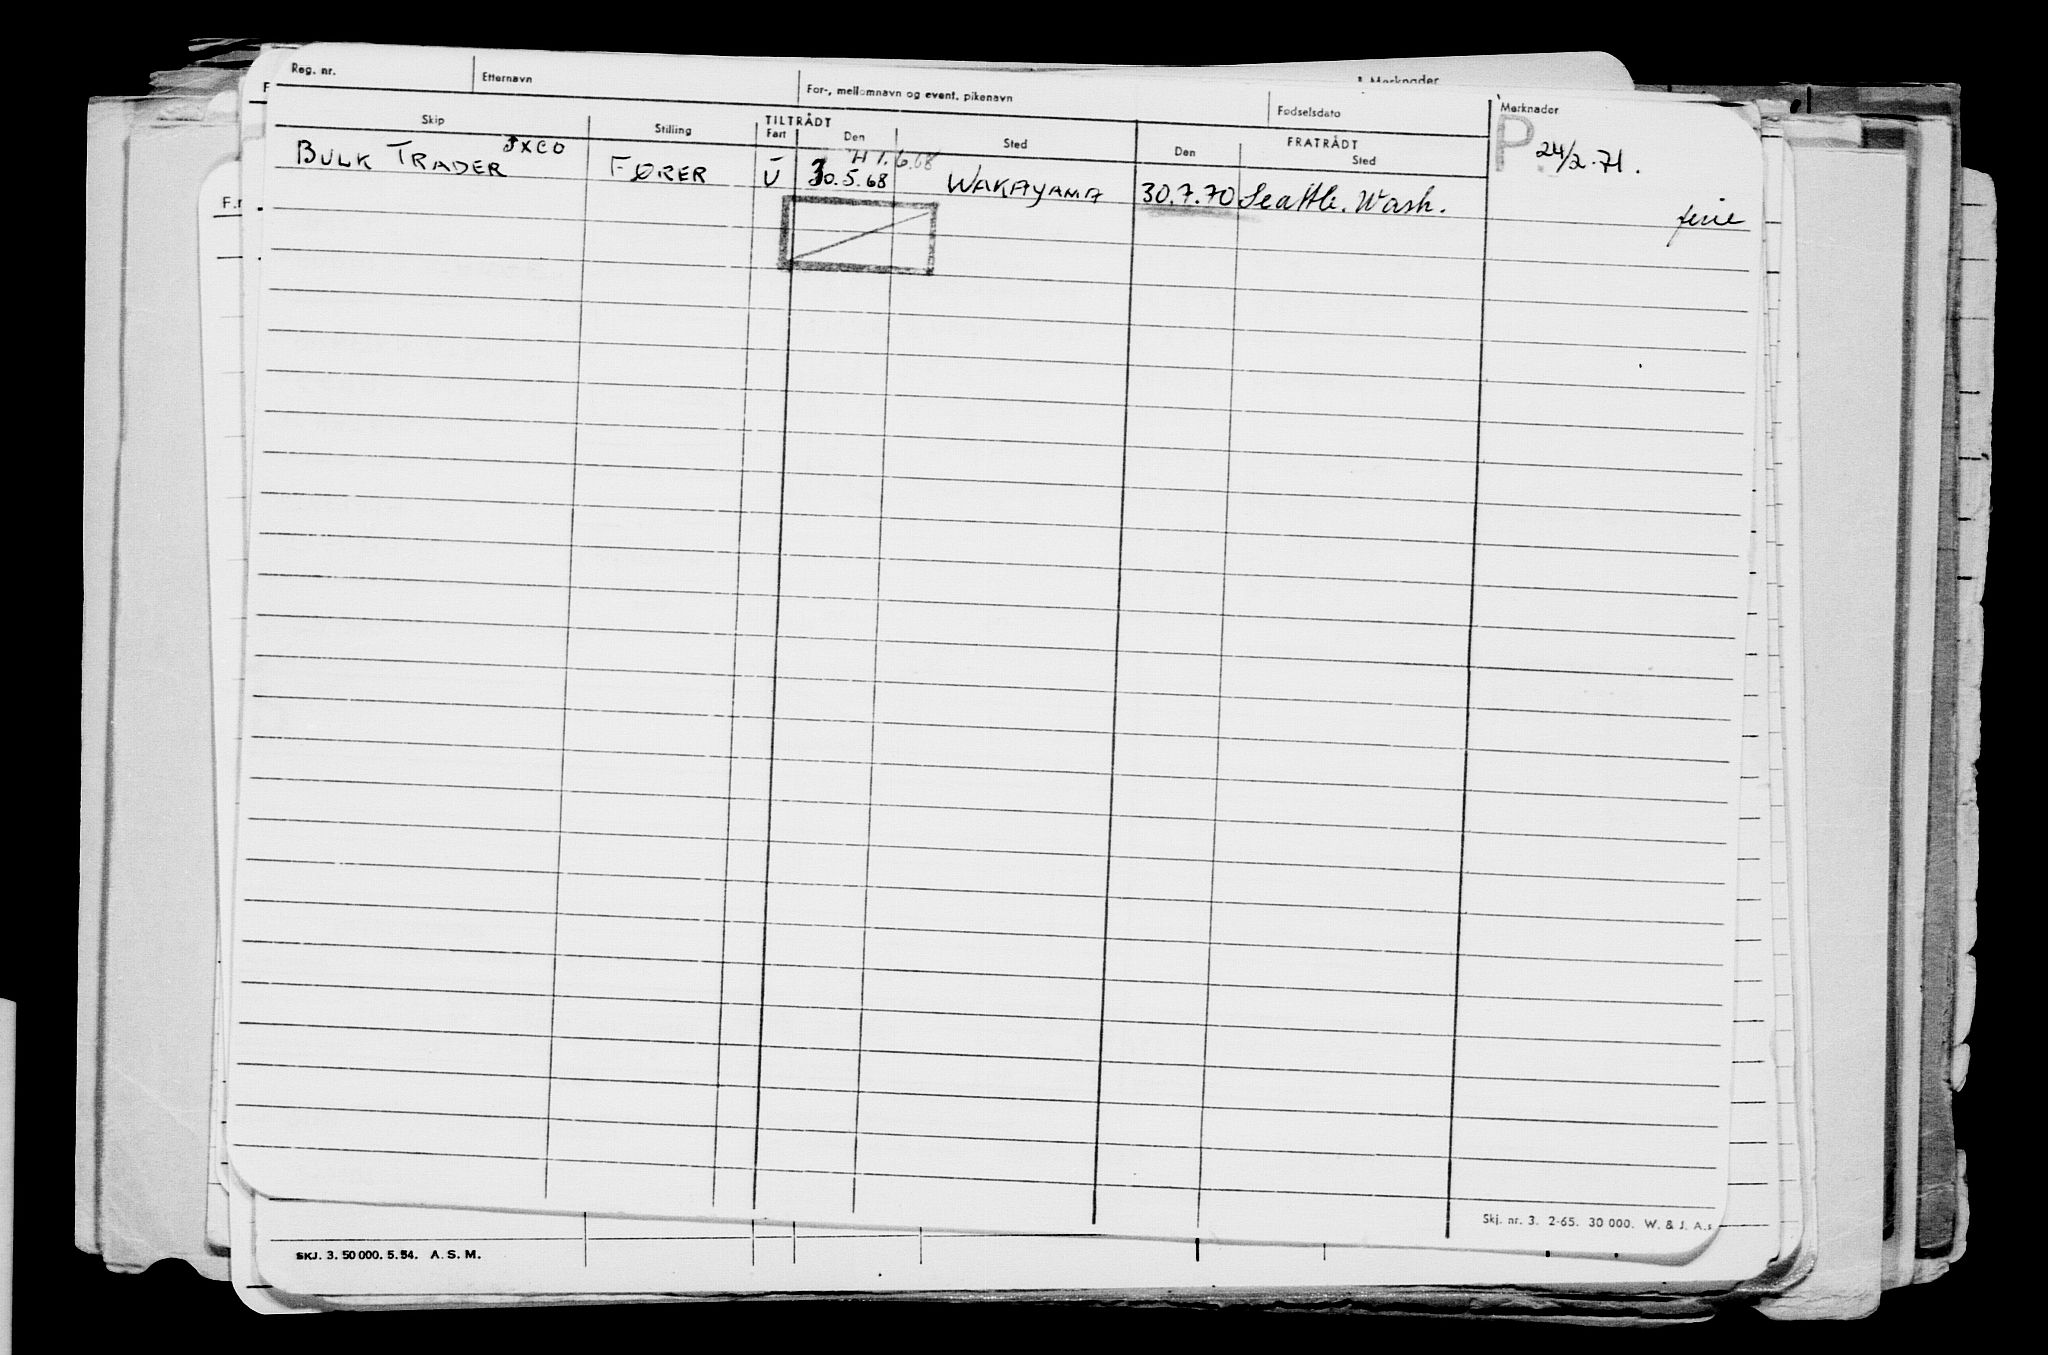 Reg. nr. Etternavn For-, mellomnavn og event. pikenavn Fødselsdato Merknader
Merknader
Skip Stilling TILTRÅDT FRATRÅDT
Fart Den Sted Den Sted
BULK TRADER JXCO FØRER U 30.5.68 WAKAYAMA 30.7.70 Seattle. Wash. ferie
6.68
P 24/2.71.
Skj. nr. 3. 2-65. 30 000. W. & J. A.s
SKJ. 3. 50 000. 5. 54. A. S. M.